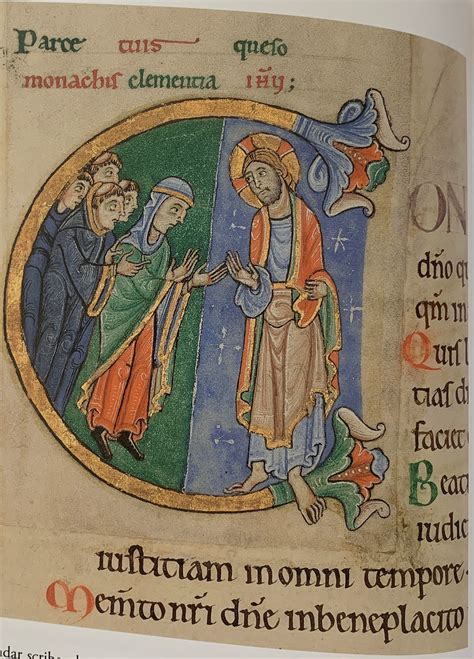 Parce tuis queso
monachis clementia ihũ;
C
ON
dño q
qm̃ in
Quis l
tias d
faciet
Beat
iudic
iustitiam in omni tempore
Mem̃to nr̃i dñe in beneplacito